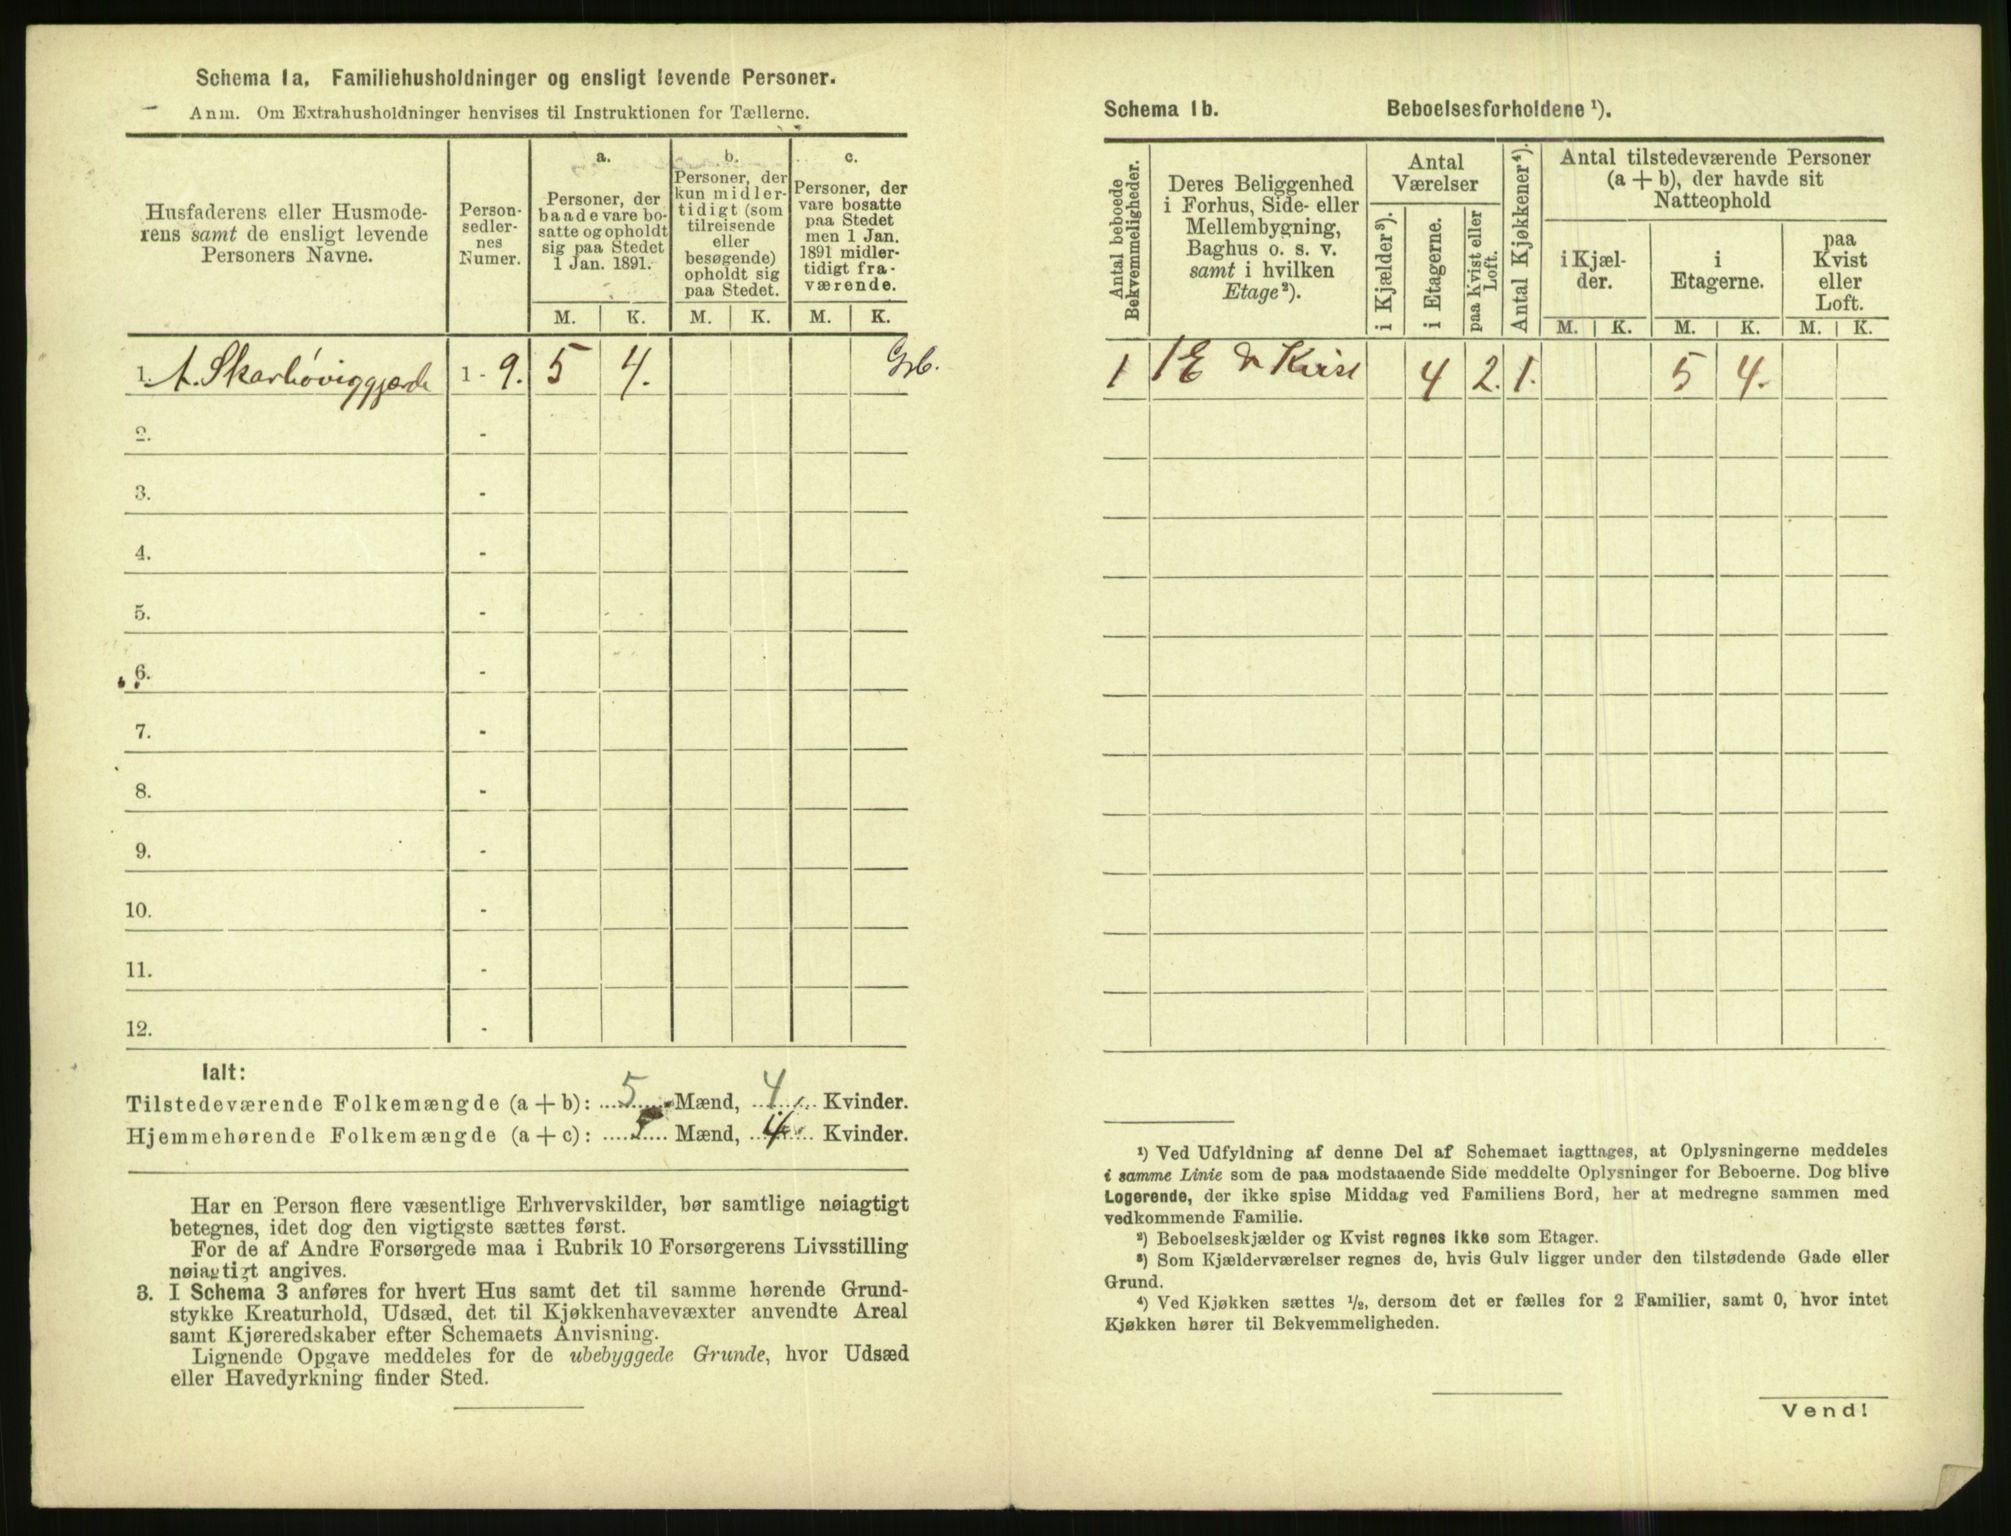 Schema 1a. Familiehusholdninger og ensligt levende Personer.
Anm. Om Extrahusholdninger henvises til Instruktionen for Tællerne.
Husfaderens eller Husmode-
rens samt de ensligt levende
Personers Navne.
Person-
sedler-
nes
Numer.
a.
Personer, der
baade vare bo-
satte og opholdt
sig paa Stedet
1 Jan. 1891.
b.
Personer, der
kun midler-
tidigt (som
tilreisende
eller
besøgende)
opholdt sig
paa Stedet.
c.
Personer, der
vare bosatte
paa Stedet
men 1 Jan.
1891 midler-
tidigt fra-
værende.
M. K. M. K. M. K.
1. A. Skarhøviggjerde 1 - 9. 5 4.
2. -
3. -
4. -
5. -
6. -
7. -
8. -
9. -
10. -
11. -
12. -
Ialt:
Tilstedeværende Folkemængde (a + b): 5 Mænd, 4 Kvinder.
Hjemmehørende Folkemængde (a + c): 5 Mænd, 4 Kvinder.
Har en Person flere væsentlige Erhvervskilder, bør samtlige nøiagtigt
betegnes, idet dog den vigtigste sættes først.
For de af Andre Forsørgede maa i Rubrik 10 Forsørgerens Livsstilling
nøiagtigt angives.
3. I Schema 3 anføres for hvert Hus samt det til samme hørende Grund-
stykke Kreaturhold, Udsæd, det til Kjøkkenhavevæxter anvendte Areal
samt Kjøreredskaber efter Schemaets Anvisning.
Lignende Opgave meddeles for de ubebyggede Grunde, hvor Udsæd
eller Havedyrkning finder Sted.
Schema 1b. Beboelsesforholdene ¹).
Antal beboede
Bekvemmeligheder.
Deres Beliggenhed
i Forhus, Side- eller
Mellembygning,
Baghus o. s. v.
samt i hvilken
Etage²).
Antal
Værelser
i Kjælder³).
i Etagerne.
paa Kvist eller
Loft.
Antal Kjøkkener⁴).
Antal tilstedeværende Personer
(a + b), der havde sit
Natteophold
i Kjæl-
der.
i
Etagerne.
paa
Kvist
eller
Loft.
M. K. M. K. M. K.
1 1 E Kvist 4 2. 1. 5 4.
¹) Ved Udfyldning af denne Del af Schemaet iagttages, at Oplysningerne meddeles
i samme Linie som de paa modstaaende Side meddelte Oplysninger for Beboerne. Dog blive
Logerende, der ikke spise Middag ved Familiens Bord, her at medregne sammen med
vedkommende Familie.
²) Beboelseskjælder og Kvist regnes ikke som Etager.
³) Som Kjælderværelser regnes de, hvis Gulv ligger under den tilstødende Gade eller
Grund.
⁴) Ved Kjøkken sættes ½, dersom det er fælles for 2 Familier, samt 0, hvor intet
Kjøkken hører til Bekvemmeligheden.
Vend!